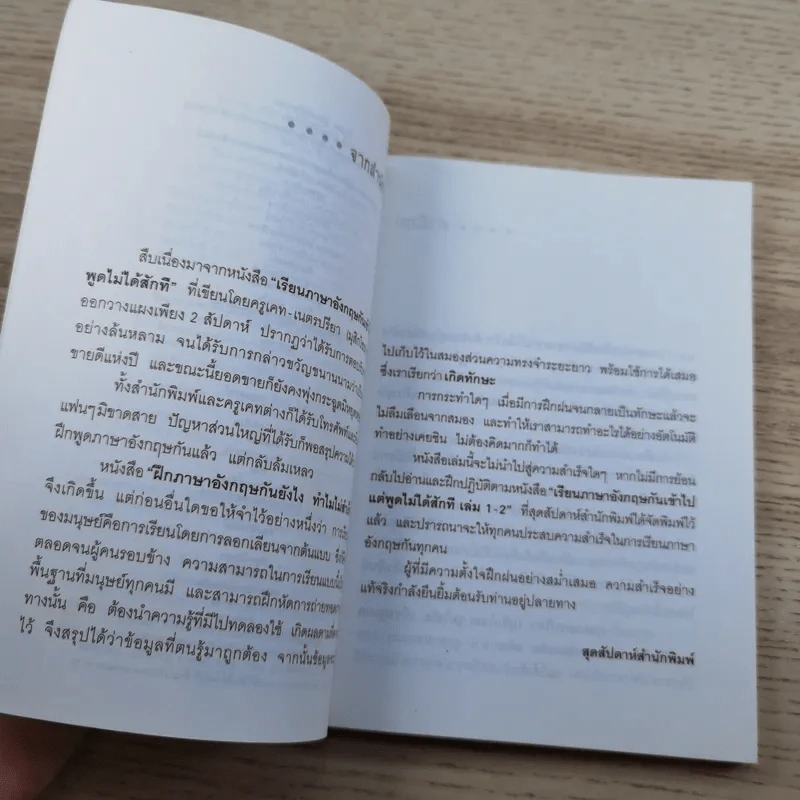 จากสำนัก
สืบเนื่องมาจากหนังสือ "เรียนภาษาอังกฤษกัน
พูดไม่ได้สักที" ที่เขียนโดยครูเคท-เนตรปรียา
ออกวางแผงเพียง 2 สัปดาห์ ปรากฏว่าได้รับการตอบ
อย่างล้นหลาม จนได้รับการกล่าวขวัญขนานนามว่า
ขายดีแห่งปี และขณะนี้ยอดขายก็ยังคงพุ่งกระฉูด
ทั้งสำนักพิมพ์และครูเคทต่างก็ได้รับโทรศัพท์
แฟนๆ มิขาดสาย ปัญหาส่วนใหญ่ที่ได้รับก็พอสรุปความได้
ฝึกพูดภาษาอังกฤษกันแล้ว แต่กลับล้มเหลว
หนังสือ "ฝึกภาษาอังกฤษกันยังไง ทำไมไม่
จึงเกิดขึ้น แต่ก่อนอื่นใดขอให้จำไว้อย่างหนึ่งว่า การ
ของมนุษย์คือการเรียนโดยการลอกเลียนจากต้นแบบ
ตลอดจนผู้คนรอบข้าง ความสามารถในการเรียนแบบ
พื้นฐานที่มนุษย์ทุกคนมี และสามารถฝึกหัดการถ่ายทอด
ทางนั้น คือ ต้องนำความรู้ที่มีไปทดลองใช้ เกิดผลตาม
ไว้ จึงสรุปได้ว่าข้อมูลที่ตนรู้มาถูกต้อง จากนั้นข้อมูล
ไปเก็บไว้ในสมองส่วนความทรงจำระยะยาว พร้อมใช้การได้เสมอ
ซึ่งเราเรียกว่า เกิดทักษะ
การกระทำใดๆ เมื่อมีการฝึกฝนจนกลายเป็นทักษะแล้วจะ
ไม่ลืมเลือนจากสมอง และทำให้เราสามารถทำอะไรได้อย่างอัตโนมัติ
ทำอย่างเคยชิน ไม่ต้องคิดมากก็ทำได้
หนังสือเล่มนี้จะไม่นำไปสู่ความสำเร็จใดๆ หากไม่มีการย้อน
กลับไปอ่านและฝึกปฏิบัติตามหนังสือ "เรียนภาษาอังกฤษกันเข้าไป
แต่พูดไม่ได้สักที เล่ม 1-2" ที่สุดสัปดาห์สำนักพิมพ์ได้จัดพิมพ์ไว้
แล้ว และปรารถนาจะให้ทุกคนประสบความสำเร็จในการเรียนภาษา
อังกฤษกันทุกคน
ผู้ที่มีความตั้งใจฝึกฝนอย่างสม่ำเสมอ ความสำเร็จอย่าง
แท้จริงกำลังยืนยิ้มต้อนรับท่านอยู่ปลายทาง
สุดสัปดาห์สำนักพิมพ์